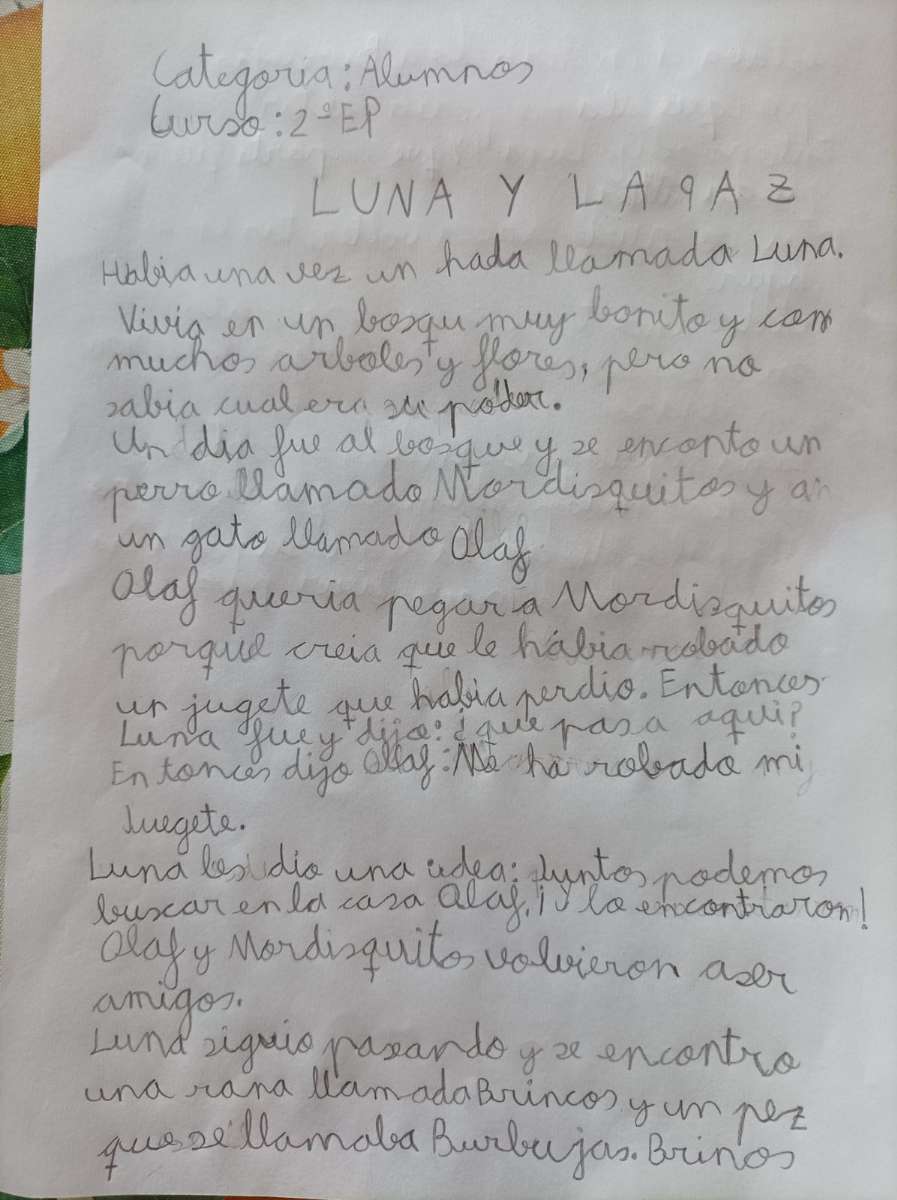 Categoria: Alumnos
Curso: 2º EP
LUNA Y LA PAZ
Habia una vez un hada llamada Luna.
Vivia en un bosqu muy bonito y con
muchos arboles y flores, pero no
sabia cual era su poder.
Un dia fue al bosque y se enconto un
perro llamado Mordisquitos y a
un gato llamado Olaf
Olaf queria pegar a Mordisquitos
porque creia que le habia robado
un jugete que habia perdio. Entonces
Luna fue y dijo: ¿que pasa aqui?
Entonces dijo Olaf: Me ha robado mi
Juegete.
Luna les dio una idea: Juntos podemos
buscar en la casa Olaf. ¡y lo encontraron!
Olaf y Mordisquitos volvieron a ser
amigos.
Luna siguio pasando y se encontro
una rana llamada Brincos y un pez
que se llamaba Burbujas. Brinos